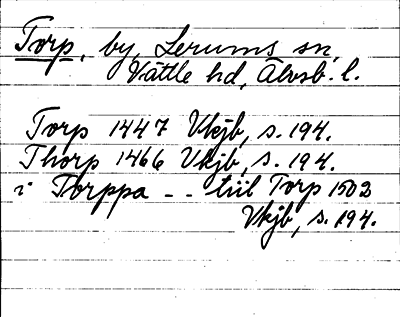 Torp, by, Lerums sn,
Vättle hd, Älvsb. l.
Torp 1447 Vkjb, s. 194.
Thorp 1466 Vkjb, s. 194.
i Torppa - - tiil Torp 1503
Vkjb, s. 194.